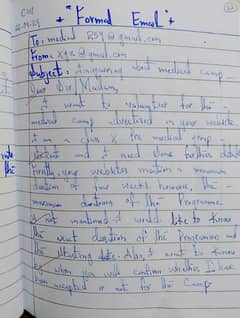 CW
* "Formal Email" *
To: medical 859@gmail.com
From: xyz@gmail.com
Subject: Enquiring about medical camp
Dear Sir/Madam,
I want to volunteer for the
medical camp advertised in your website.
I am a class X
student and I need some further details
Firstly, your website mentions a minimum
duration of four weeks however, the
maximum duration of the Programme
is not mentioned. I would like to know
the exact duration of the Programme and
the starting date. Also, I want to know
when you will confirm whether I have
been accepted or not for the Camp
note
the